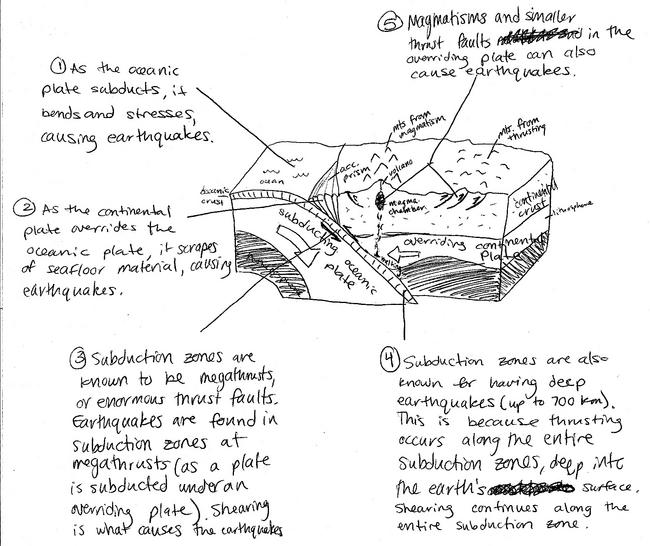 ① As the oceanic
plate subducts, it
bends and stresses,
causing earthquakes.
② As the continental
plate overrides the
oceanic plate, it scrapes
of seafloor material, causing
earthquakes.
③ Subduction zones are
known to be megathrusts,
or enormous thrust faults.
Earthquakes are found in
subduction zones at
megathrusts (as a plate
is subducted under an
overriding plate). Shearing
is what causes the earthquakes
④ Subduction zones are also
known for having deep
earthquakes (up to 700 km).
This is because thrusting
occurs along the entire
subduction zones, deep into
the earth's surface.
Shearing continues along the
entire subduction zone.
⑤ Magmatisms and smaller
thrust faults in the
overriding plate can also
cause earthquakes.
ocean
oceanic
crust
acc.
prism
mts from
magmatism
volcano
magma
chamber
mts. from
thrusting
continental
crust
lithosphere
subducting
oceanic
plate
overriding continental
plate